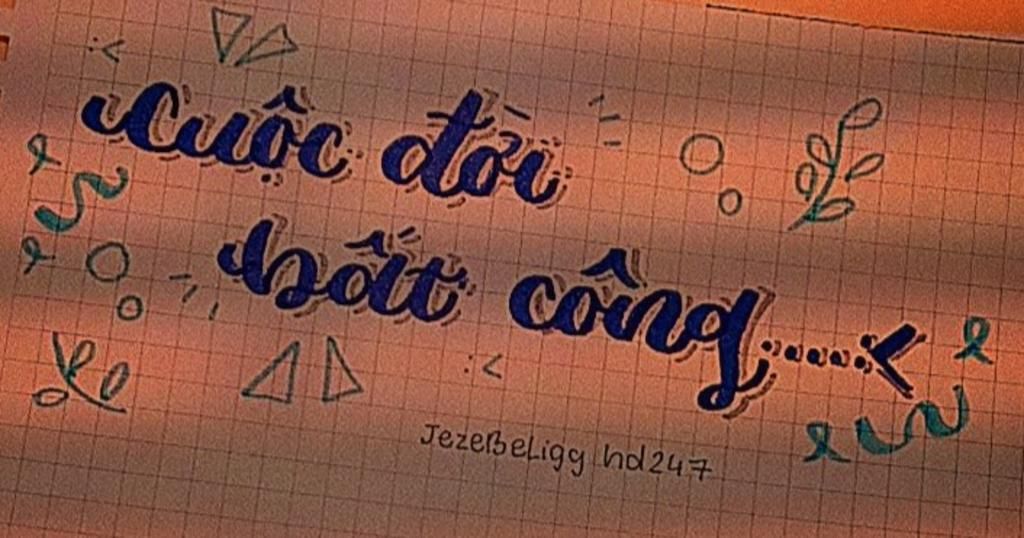 :<
Cuộc đời
bất công.....<
:<
JezeBeLigg hd247